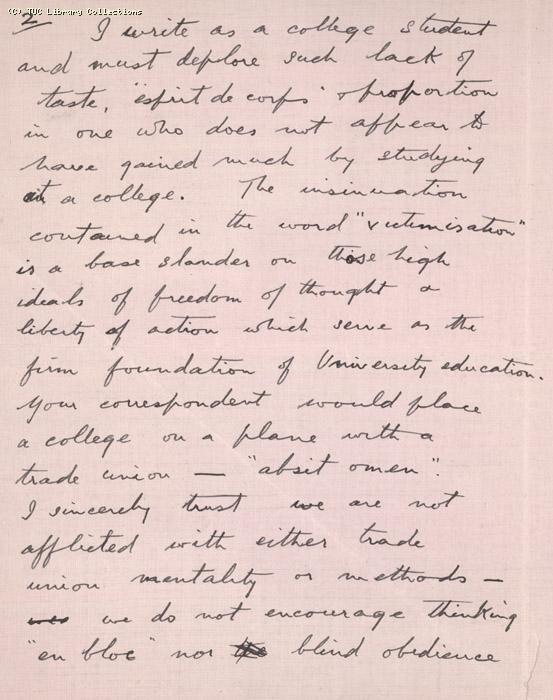 (C) TUC Library Collections
2 I write as a college student
and must deplore such lack of
taste, "esprit de corps" & proportion
in one who does not appear to
have gained much by studying
at a college. The insinuation
contained in the word "victimisation"
is a base slander on those high
ideals of freedom of thought &
liberty of action which serve as the
firm foundation of University education.
Your correspondent would place
a college on a plane with a
trade union — "absit omen".
I sincerely trust we are not
afflicted with either trade
union mentality or methods —
we do not encourage thinking
"en bloc" nor blind obedience